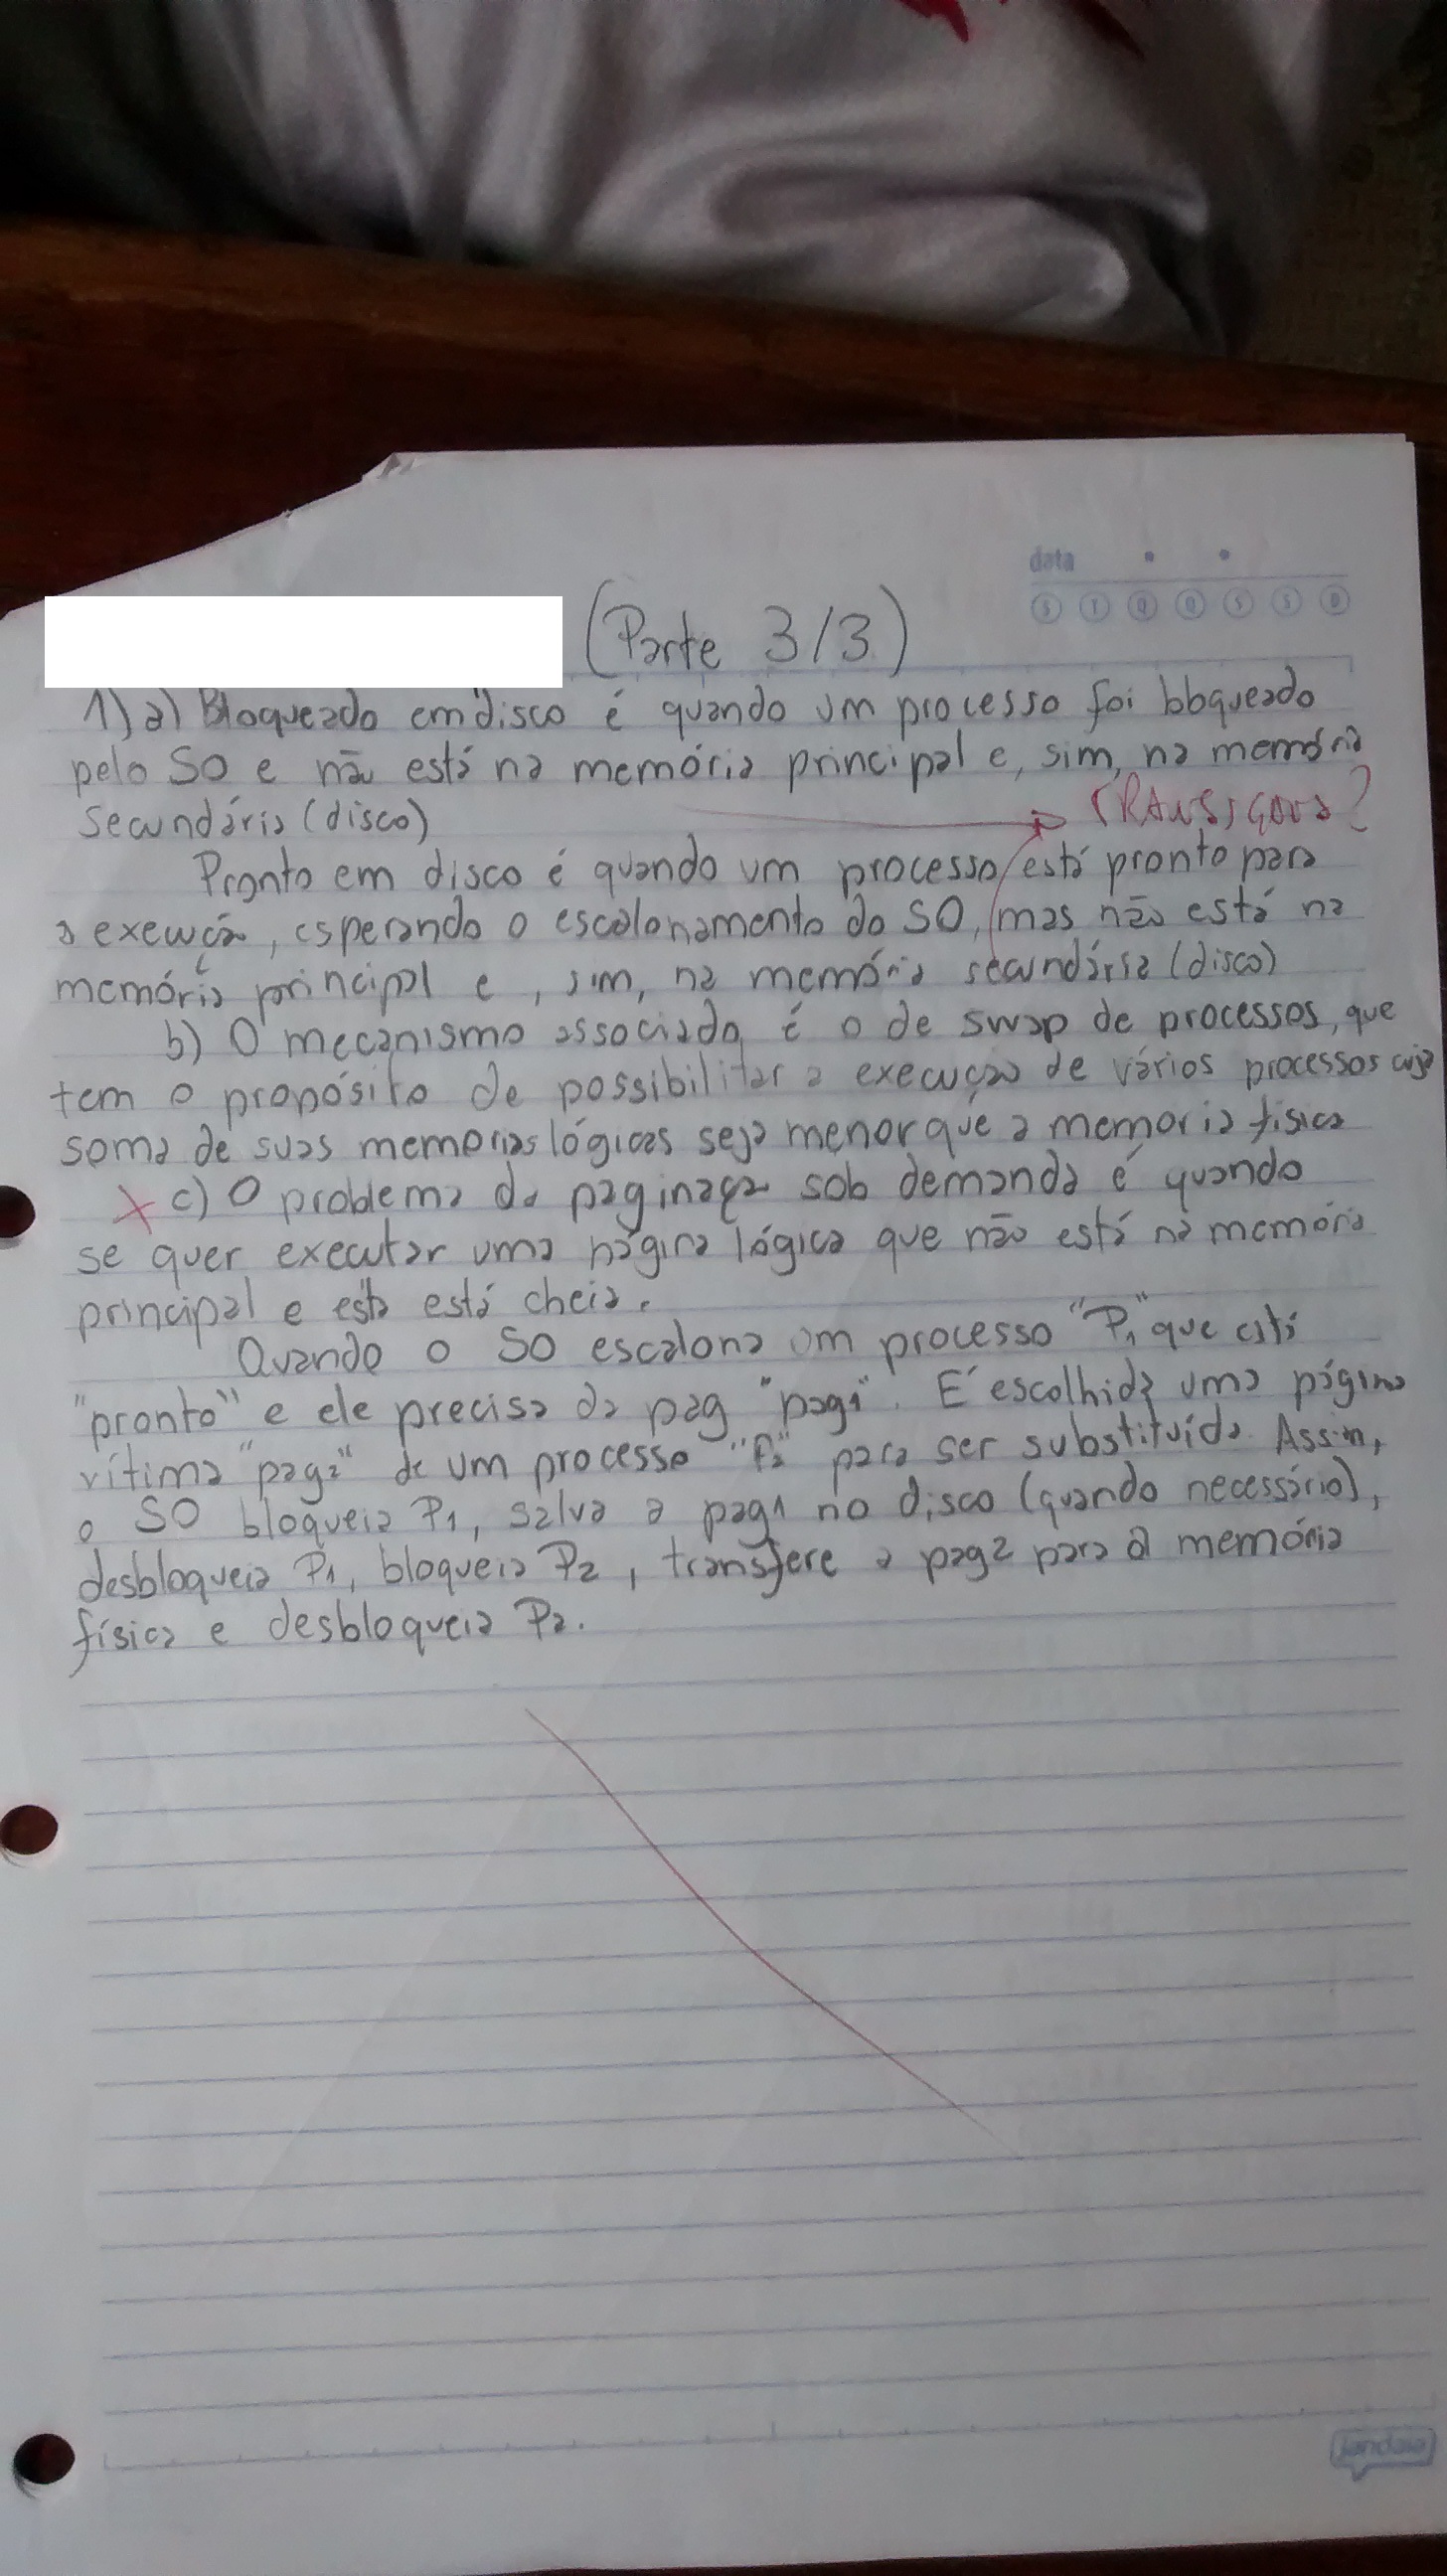 data
S T Q Q S S D
(Parte 3/3)
1) a) Bloqueado em disco é quando um processo foi bloqueado
pelo SO e não está na memória principal e, sim, na memória
secundária (disco)
TRANSIÇÕES?
Pronto em disco é quando um processo está pronto para
a execução, esperando o escalonamento do SO, mas não está na
memória principal e, sim, na memória secundária (disco)
b) O mecanismo associado é o de swap de processos, que
tem o propósito de possibilitar a execução de vários processos cuja
soma de suas memorias lógicas seja menor que a memoria física
X c) O problema da paginação sob demanda é quando
se quer executar uma página lógica que não está na memória
principal e esta está cheia.
Quando o SO escalona um processo "P1" que está
"pronto" e ele precisa da pag "pag1". É escolhida uma página
vítima "pag2" de um processo "P2" para ser substituída. Assim,
o SO bloqueia P1, salva a pag1 no disco (quando necessário),
desbloqueia P1, bloqueia P2, transfere a pag2 para a memória
física e desbloqueia P2.
jandaia